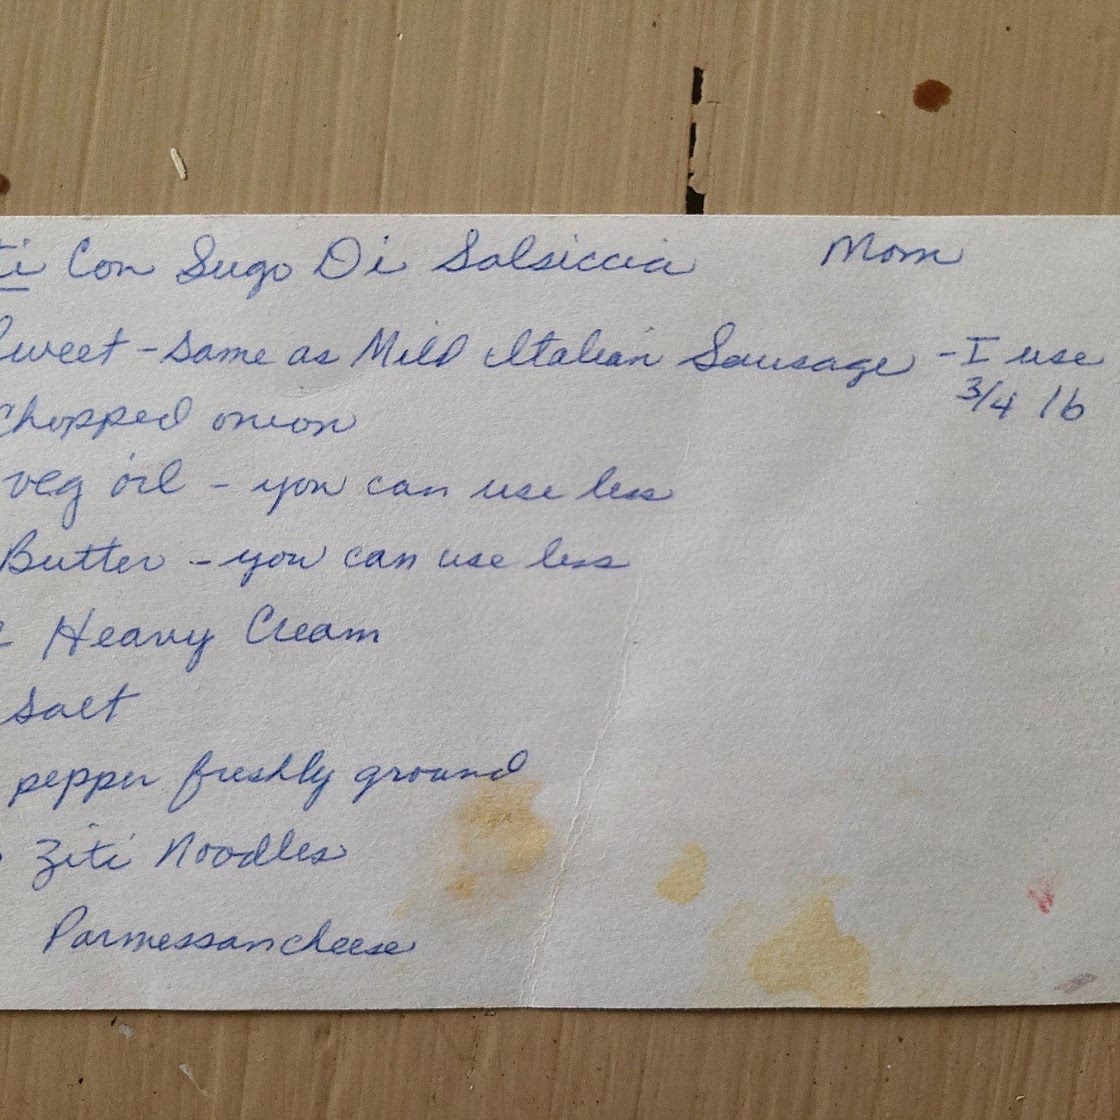 ti Con Sugo Di Salsiccia Mom
Sweet - Same as Mild Italian Sausage - I use
3/4 lb
Chopped onion
veg oil - you can use less
Butter - you can use less
Heavy Cream
Salt
pepper freshly ground
Ziti Noodles
Parmessan cheese